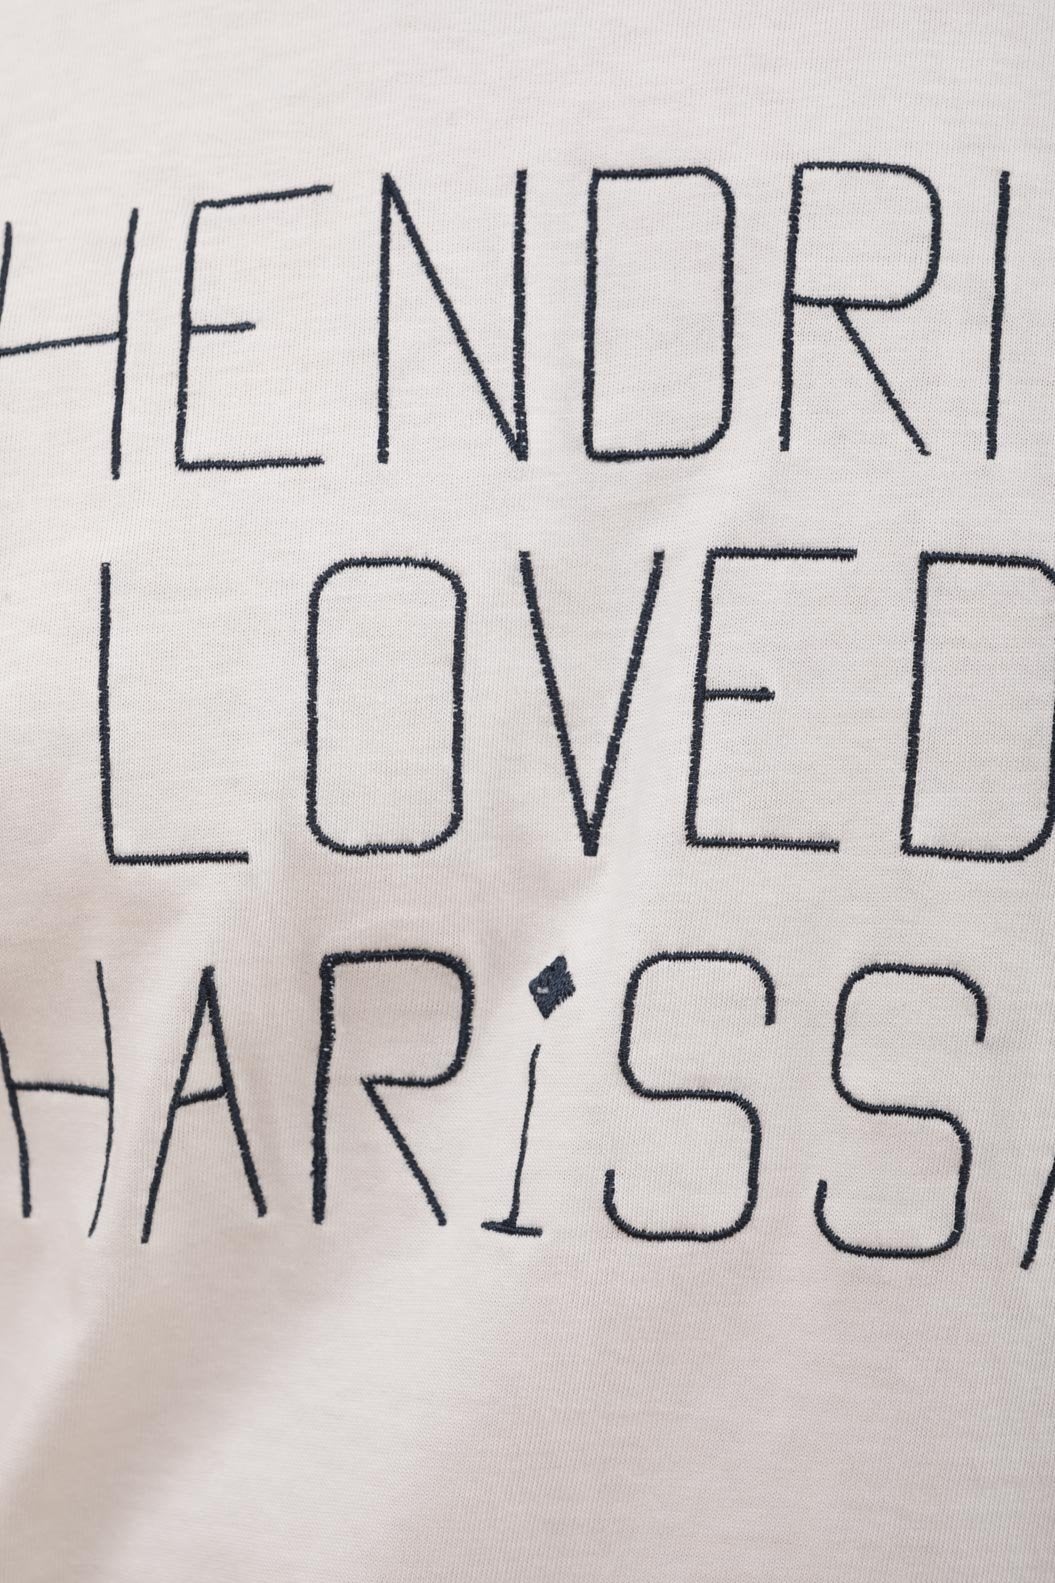 HENDRI
LOVED
HARiSSA